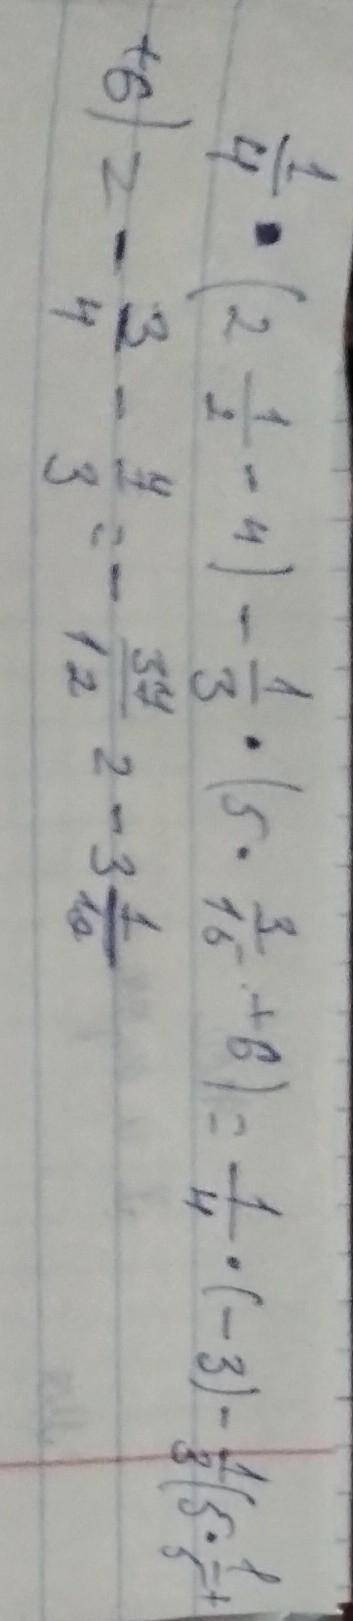 1/4 · (2 1/2 - 4) - 1/3 · (5 · 3/15 + 6) = 1/4 · (-3) - 1/3 (5 · 1/5 +
+6) = - 3/4 - 4/3 = - 37/12 = -3 1/12